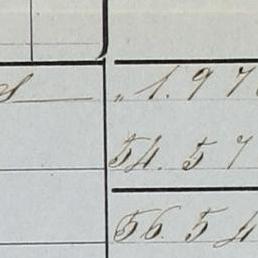 „ 1. 9 7
54. 5 7
56. 5 4